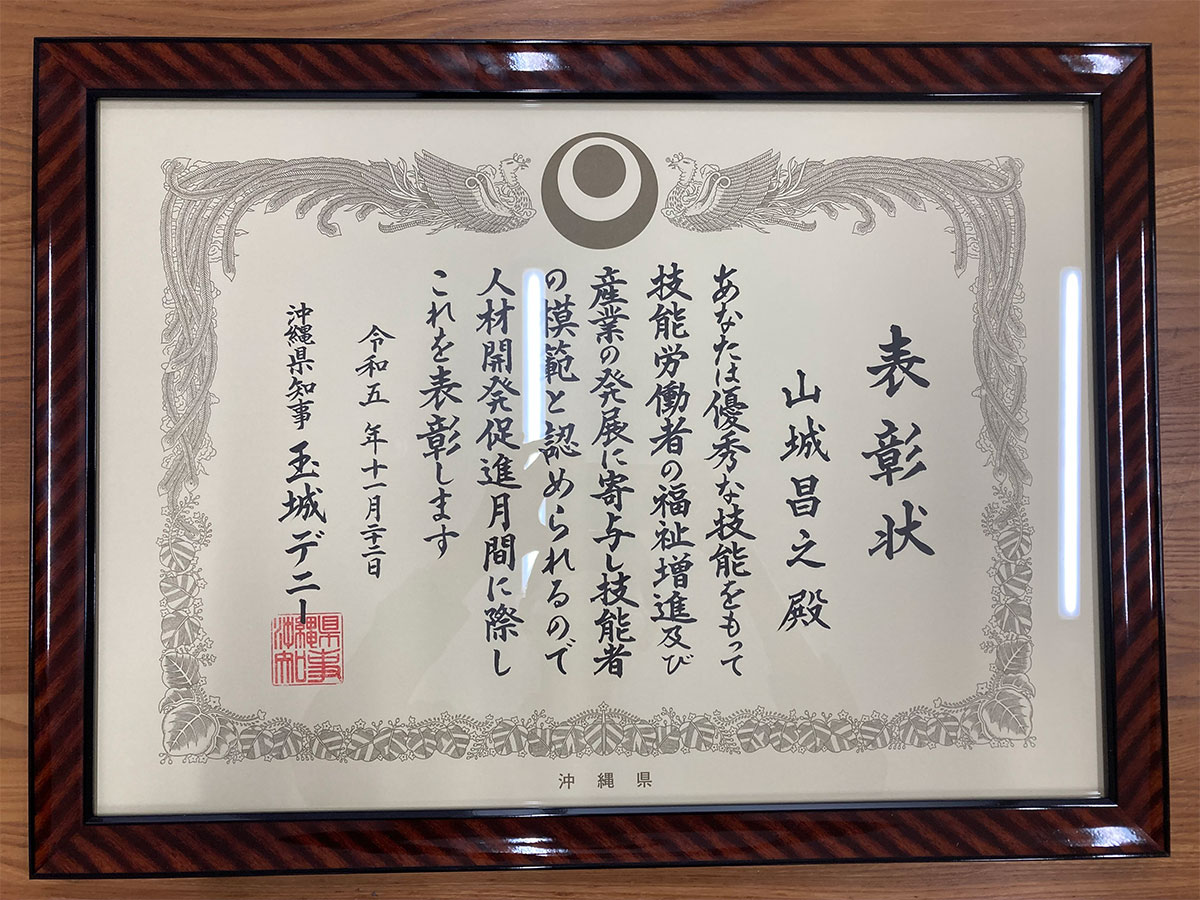 表彰状
山城昌之殿
あなたは優秀な技能をもって
技能労働者の福祉増進及び
産業の発展に寄与し技能者
の模範と認められるので
人材開発促進月間に際し
これを表彰します
令和五年十一月二十二日
沖縄県知事 玉城デニー
沖縄県知事
沖縄県